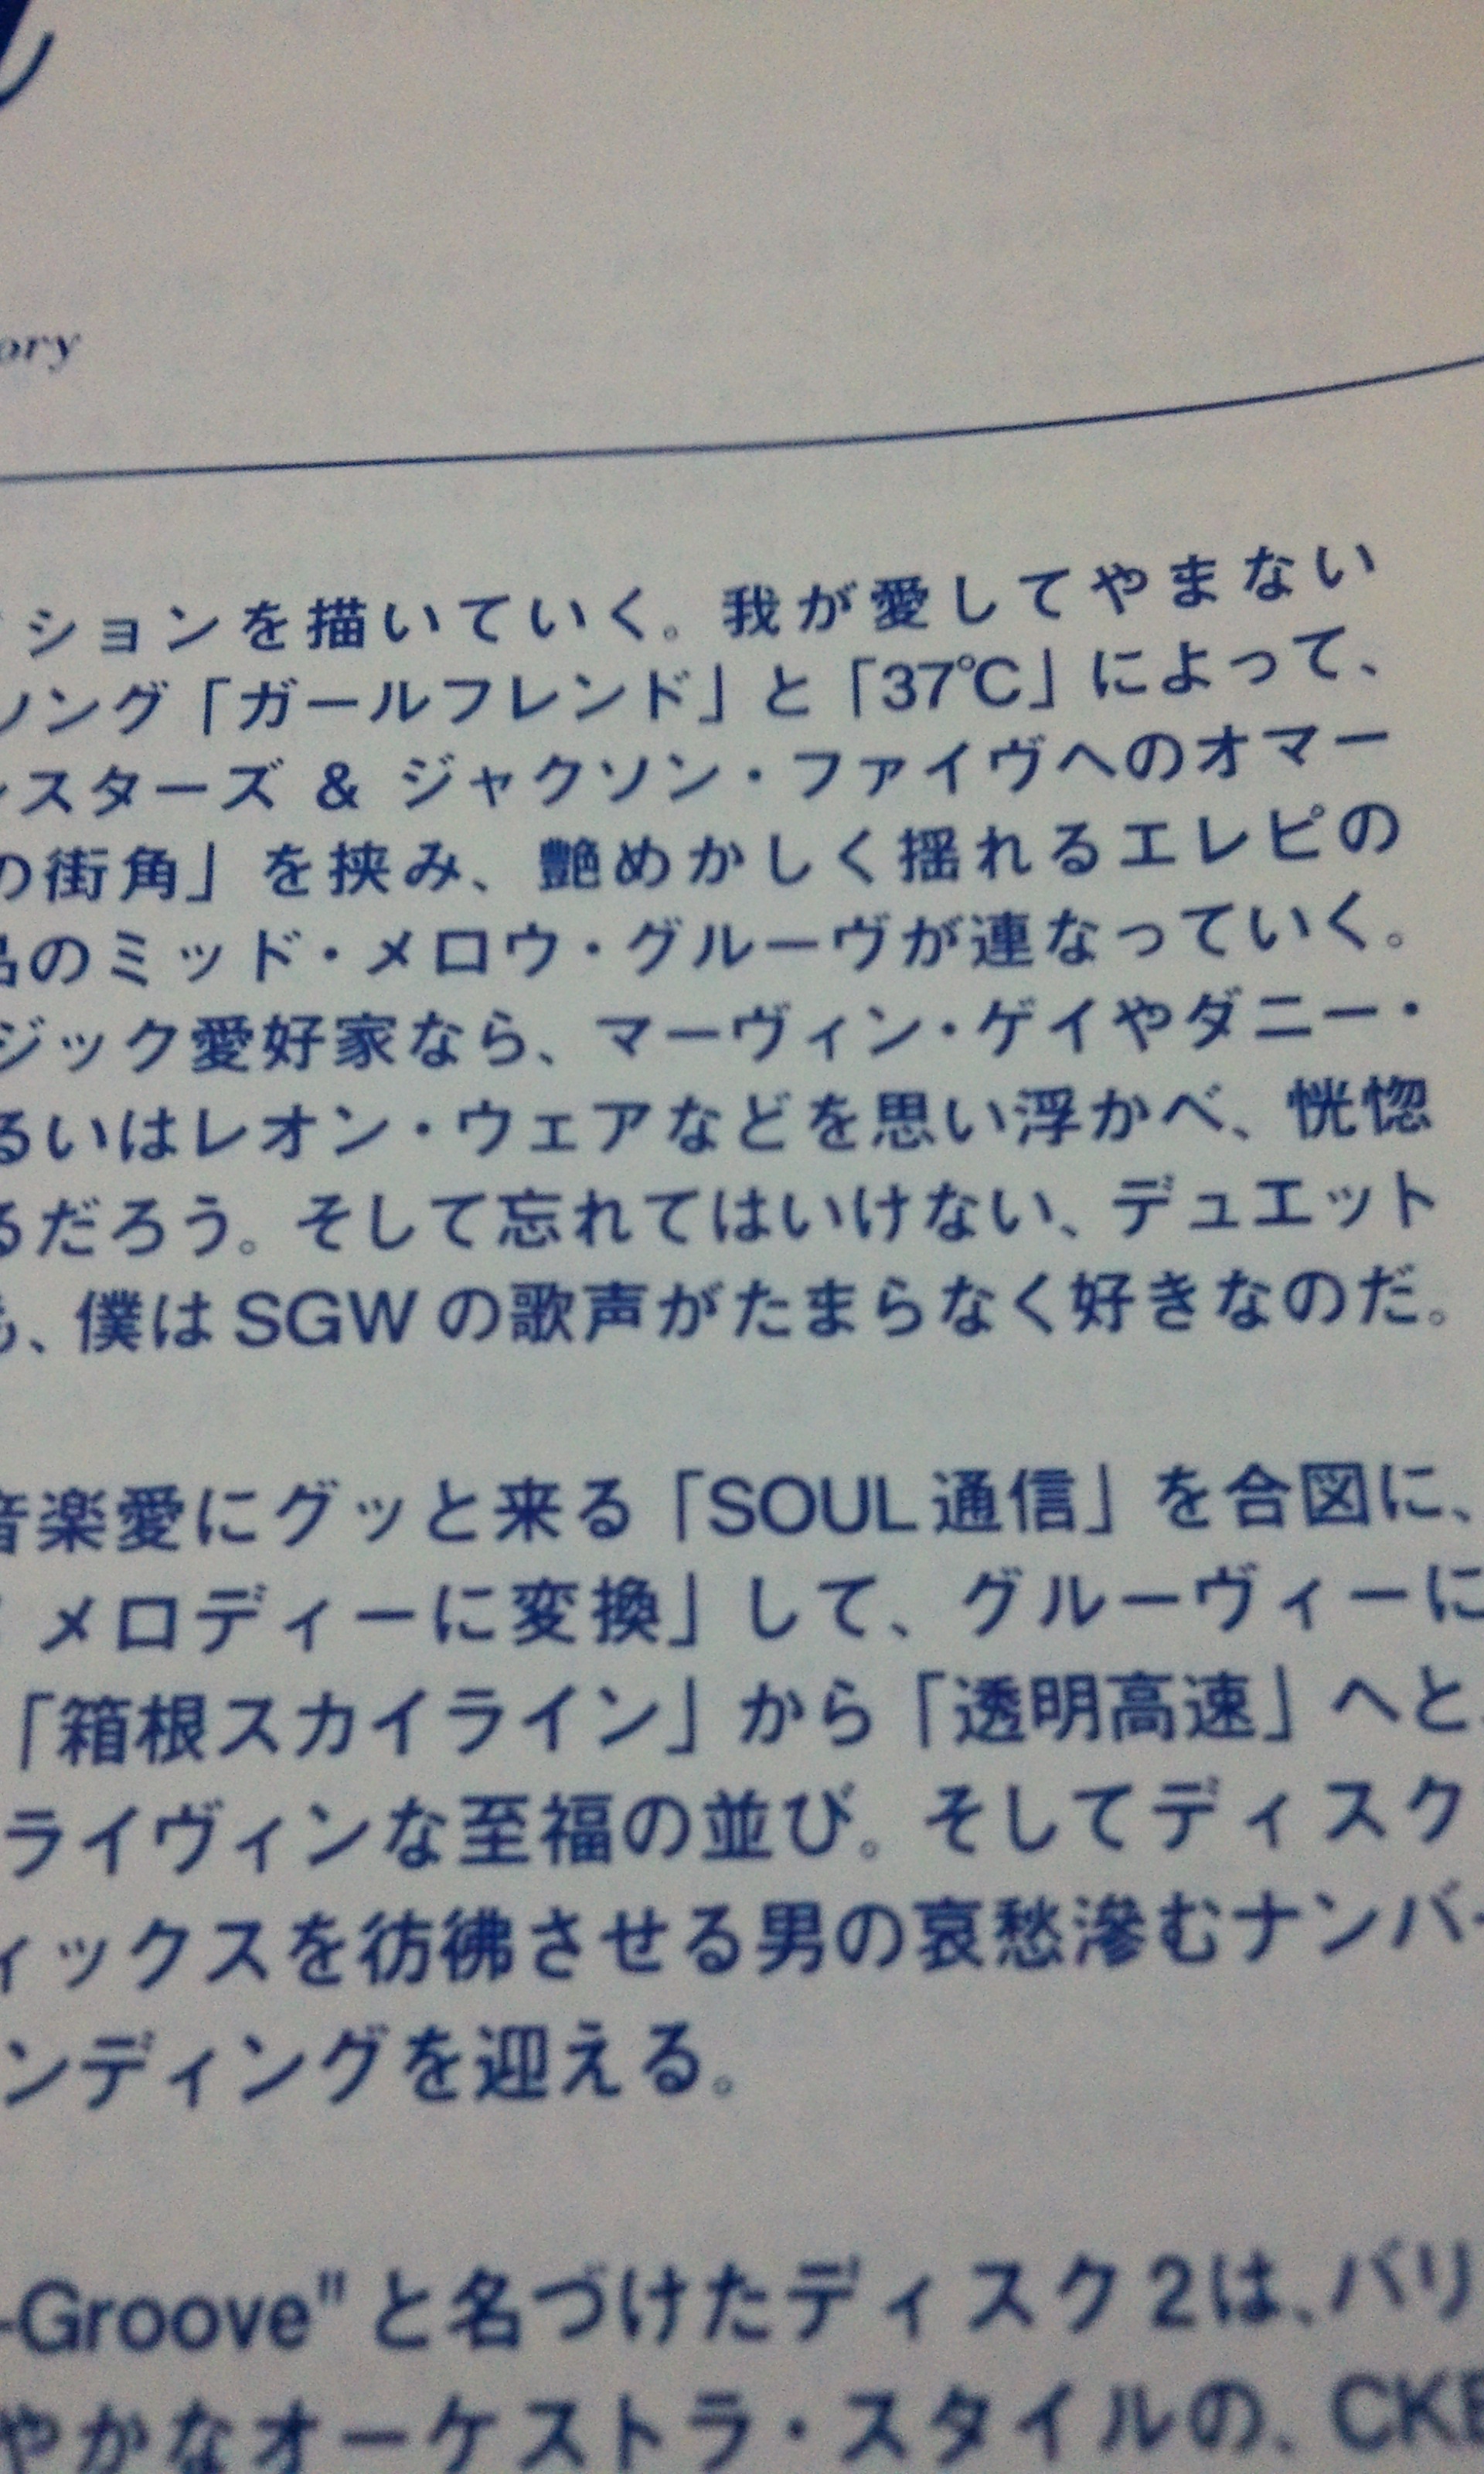 ory
ションを描いていく。我が愛してやまない
ソング「ガールフレンド」と「37℃」によって、
スターズ & ジャクソン・ファイヴへのオマー
の街角」を挟み、艶めかしく揺れるエレピの
のミッド・メロウ・グルーヴが連なっていく。
ジック愛好家なら、マーヴィン・ゲイやダニー・
るいはレオン・ウェアなどを思い浮かべ、恍惚
るだろう。そして忘れてはいけない、デュエット
も、僕は SGW の歌声がたまらなく好きなのだ。
音楽愛にグッと来る「SOUL通信」を合図に、
メロディーに変換」して、グルーヴィーに
「箱根スカイライン」から「透明高速」へと、
ライヴィンな至福の並び。そしてディスク
ィックスを彷彿させる男の哀愁滲むナンバー
ンディングを迎える。
-Groove" と名づけたディスク2は、バリ
やかなオーケストラ・スタイルの、CKB